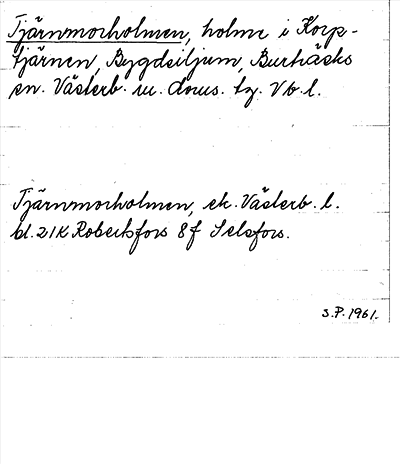 Tjärnmorholmen, holme i Korp-
tjärnen, Bygdsiljum, Burträsks
sn. Västerb. n. doms. tg. Vb. l.
Tjärnmorholmen, ek. Västerb. l.
bl. 21K Robertsfors 8f Selsfors.
S.P. 1961.